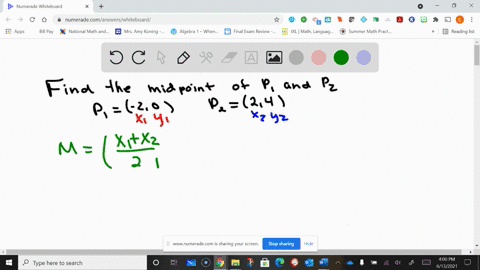 Numerade Whiteboard
numerade.com/answers/whiteboard/
Apps
Bb Pay Bill
National Math and...
Mrs. Amy Koning -...
Algebra 1 – When...
Final Exam Review -...
IXL | Math, Langua...
Summer Math Pract...
Reading list
Find the midpoint of P₁ and P₂
P₁ = (-2, 0) P₂ = (2, 4)
x₁ y₁ x₂ y₂
M = ( x₁ + x₂
2 ,
www.numerade.com is sharing your screen. Stop sharing Hide
Type here to search
4:00 PM
6/13/2021